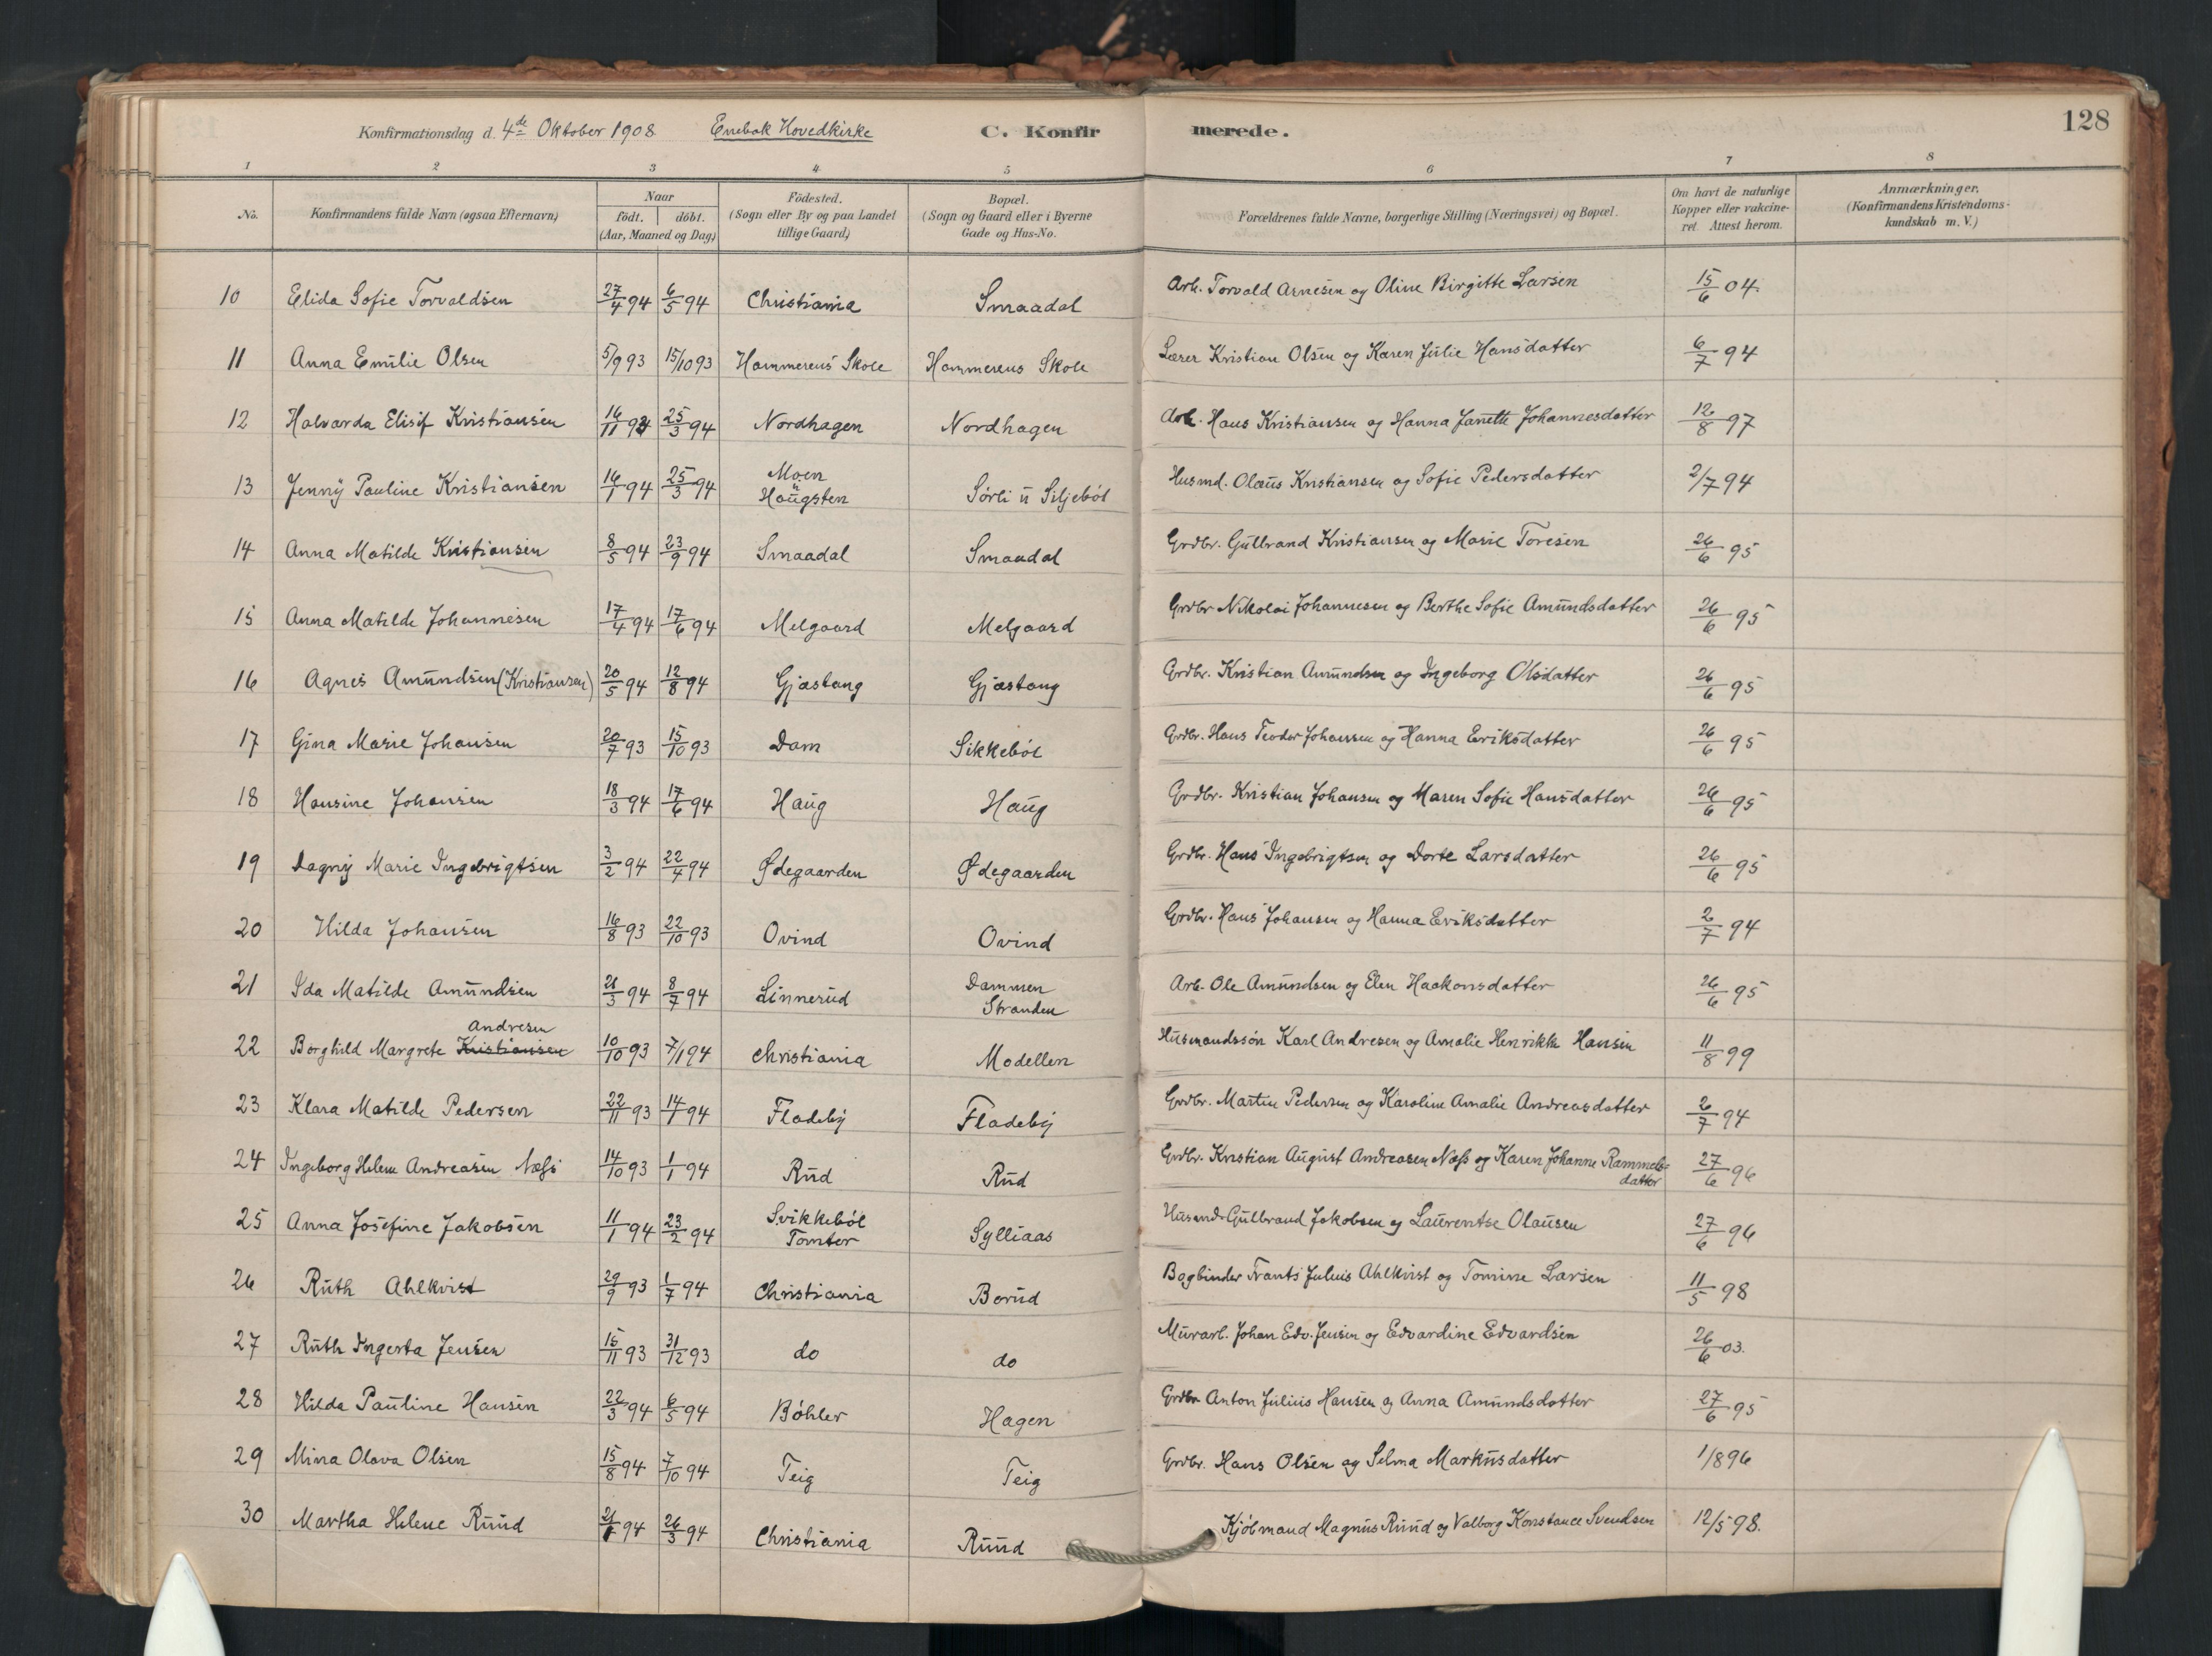 128
Konfirmationsdag d. 4de Oktober 1908 Enebak Hovedkirke C. Konfirmerede.
1 2 3 4 5 6 7 8
No. Konfirmandens fulde Navn (ogsaa Efternavn) Naar födt. döbt. (Aar, Maaned og Dag) Födested. (Sogn eller By og paa Landet tillige Gaard) Bopæl. (Sogn og Gaard eller i Byerne Gade og Hus-No. Forældrenes fulde Navne, borgerlige Stilling (Næringsvei) og Bopæl. Om havt de naturlige Kopper eller vakcineret Attest herom. Anmærkninger. (Konfirmandens Kristendomskundskab m. V.)
10 Elida Sofie Torvaldsen 27/4 94 6/5 94 Christiania Smaadal Arb. Torvald Arnesen og Oline Birgitte Larsen 15/6 04.
11 Anna Emilie Olsen 5/9 93 15/10 93 Hammerens Skole Hammerens Skole Lærer Kristian Olsen og Karen Julie Hansdatter 6/7 94
12 Halvarda Elisif Kristiansen 16/11 93 25/3 94 Nordhagen Nordhagen Arb. Hans Kristiansen og Hanna Janette Johannesdatter 12/8 97
13 Jenny Pauline Kristiansen 16/1 94 25/3 94 Moen u Haugsten Sörli u Siljeböl Husmd. Olaus Kristiansen og Sofie Pedersdatter 2/7 94
14 Anna Matilde Kristiansen 8/5 94 23/9 94 Smaadal Smaadal Grdbr. Gulbrand Kristiansen og Marie Toresen 26/6 95
15 Anna Matilde Johannesen 17/4 94 17/6 94 Melgaard Melgaard Grdbr Nikolai Johannesen og Berthe Sofie Amundsdatter 26/6 95
16 Agnes Amundsen (Kristiansen) 20/5 94 12/8 94 Gjæstang Gjæstang Grdbr. Kristian Amundsen og Ingeborg Olsdatter 26/6 95
17 Gina Marie Johansen 20/7 93 15/10 93 Dam Sikkeböl Grdbr. Hans Teodor Johansen og Hanna Eriksdatter 26/6 95
18 Hansine Johansen 18/3 94 17/6 94 Haug Haug Grdbr. Kristian Johansen og Maren Sofie Hansdatter 26/6 95
19 Dagny Marie Ingebrigtsen 3/2 94 22/4 94 Ødegaarden Ødegaarden Grdbr. Hans Ingebrigtsen og Dorte Larsdatter 26/6 95
20 Hilda Johansen 16/8 93 22/10 93 Ovind Ovind Grdbr. Hans Johansen og Hanna Eriksdatter 2/7 94
21 Ida Matilde Amundsen 21/3 94 8/7 94 Linnerud Dammen Stranden Arb. Ole Amundsen og Elen Haakonsdatter 26/6 95
22 Borghild Margrete Kristiansen Andresen 10/10 93 7/1 94 Christiania Modellen Husmandssön Karl Andresen og Amalie Henrikke Hansen 11/8 99
23 Klara Matilde Pedersen 22/11 93 14/1 94 Fladeby Fladeby Grdbr. Martin Pedersen og Karoline Amalie Andreasdatter 2/7 94
24 Ingeborg Helene Andreasen Næss 14/10 93 1/1 94 Rud Rud Grdbr. Kristian August Andreasen Næss og Karen Johanne Rammelsdatter 27/6 96
25 Anna Josefine Jakobsen 11/1 94 23/2 94 Svikkeböl Tomter Sylliaas Husmd. Gulbrand Jakobsen og Laurentse Olausen 27/6 96
26 Ruth Ahlkvist 29/9 93 1/7 94 Christiania Borud Bogbinder Frants Julius Ahlkvist og Tomine Larsen 11/5 98
27 Ruth Ingerta Jensen 15/11 93 31/12 93 do do Murarb. Johan Edv. Jensen og Edvardine Edvardsen 26/6 03.
28 Hilda Pauline Hansen 22/3 94 6/5 94 Böhler Hagen Grdbr Anton Julius Hansen og Anna Amundsdatter 27/6 95
29 Mina Olava Olsen 15/8 94 7/10 94 Teig Teig Grdbr. Hans Olsen og Selma Markusdatter 1/8 96
30 Martha Helene Ruud 94 26/3 94 Christiania Ruud Kjöbmand Magnus Ruud og Valborg Konstance Svendsen 12/5 98.